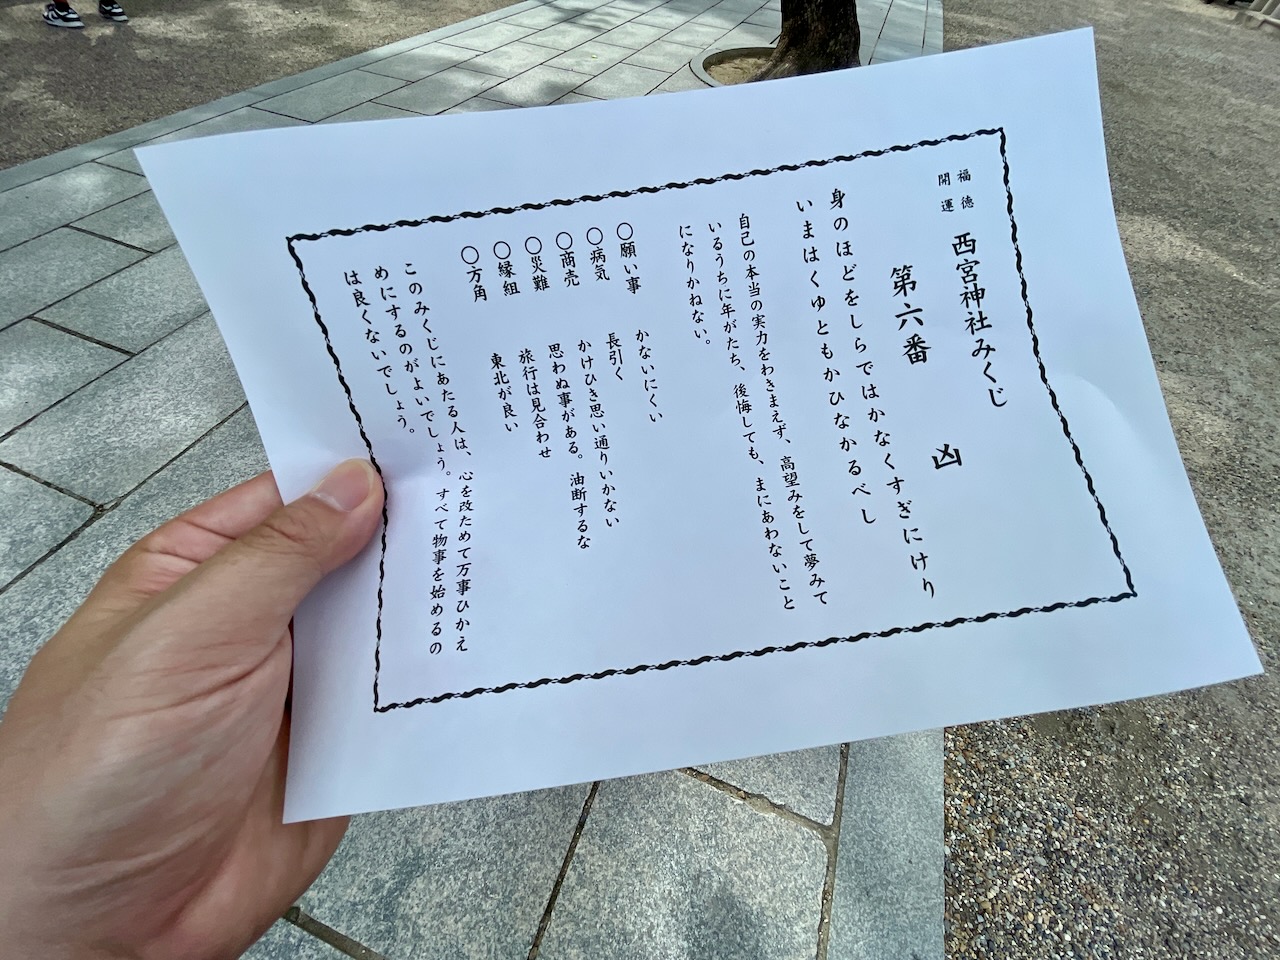 福徳
開運
西宮神社みくじ
第六番 凶
身のほどをしらではかなくすぎにけり
いまはくゆともかひなかるべし
自己の本当の実力をわきまえず、高望みをして夢みて
いるうちに年がたち、後悔しても、まにあわないこと
になりかねない。
〇願い事 かないにくい
〇病気 長引く
〇商売 かけひき思い通りいかない
〇災難 思わぬ事がある。油断するな
〇縁組 旅行は見合わせ
〇方角 東北が良い
このみくじにあたる人は、心を改ためて万事ひかえ
めにするのがよいでしょう。すべて物事を始めるの
は良くないでしょう。